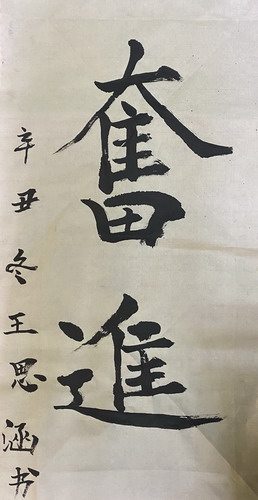 奮進
辛丑冬王思涵书